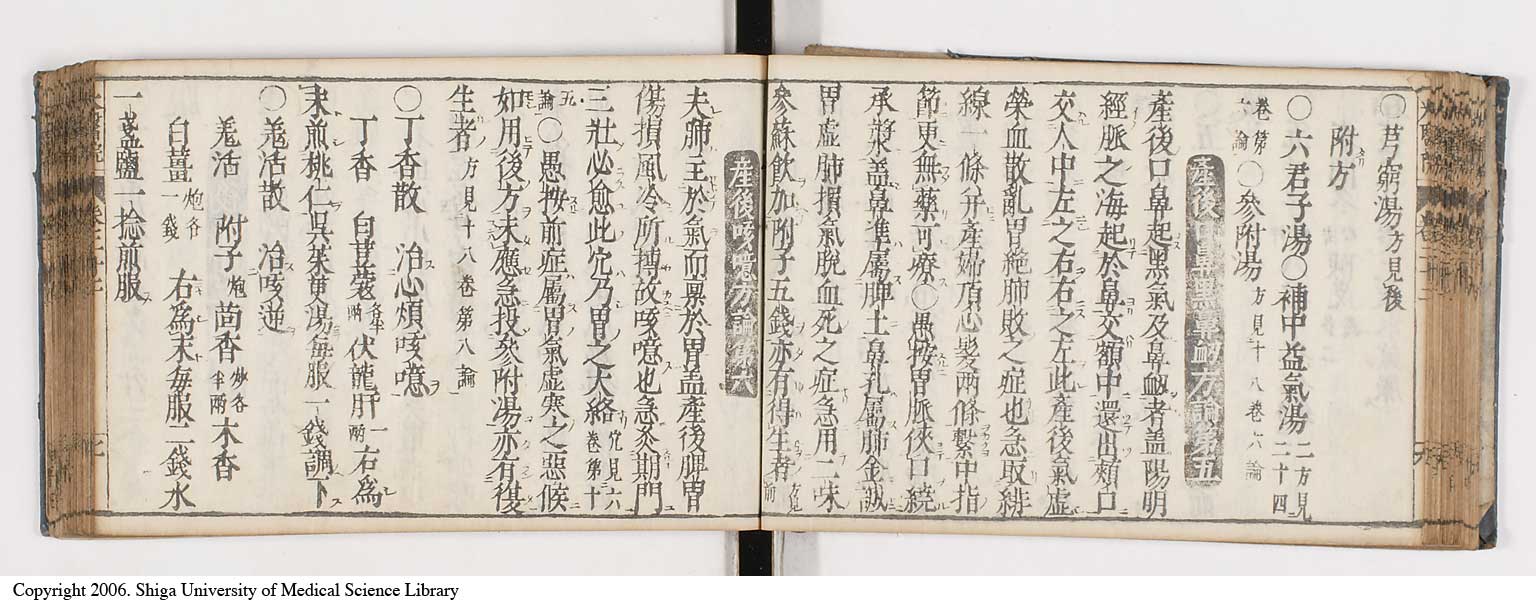 〇芎藭湯方見後
附方
〇六君子湯〇補中益氣湯二方見二十四
卷第六論〇參附湯方見十八卷八論
産後口鼻黑氣鼻衂方論第五
産後口鼻起黑氣及鼻衂者盖陽明
經脈之海起於鼻交頞中還出頰口
交人中左之右右之左此産後氣虛
榮血散亂胃絶肺敗之症也急取緋
線一條并産婦頂心髮兩條繫中指
節更無藥可療〇愚按胃脈俠口繞
承漿盖鼻準屬脾土鼻孔屬肺金誠
胃虛肺損氣脫血死之症急用二味
參蘇飮加附子五錢亦有得生者方見前
産後咳噫方論第六
夫肺主於氣而禀於胃盖産後脾胃
傷損風冷所搏故咳噫也急灸期門
三壯必愈此穴乃胃之大絡穴見六卷第十
論〇愚按前症屬胃氣虛寒之惡候
如用後方未應急投參附湯亦有復
生者方見十八卷第八論
〇丁香散 治心煩咳噫
丁香 白荳蔲各半兩伏龍肝一兩右爲
末煎桃仁吳茱萸湯每服一錢調下
〇羗活散 治咳逆
羗活 附子炮茴香炒各半兩木香
白薑炮各一錢 右爲末每服二錢水
一盞鹽一捻煎服
Copyright 2006. Shiga University of Medical Science Library